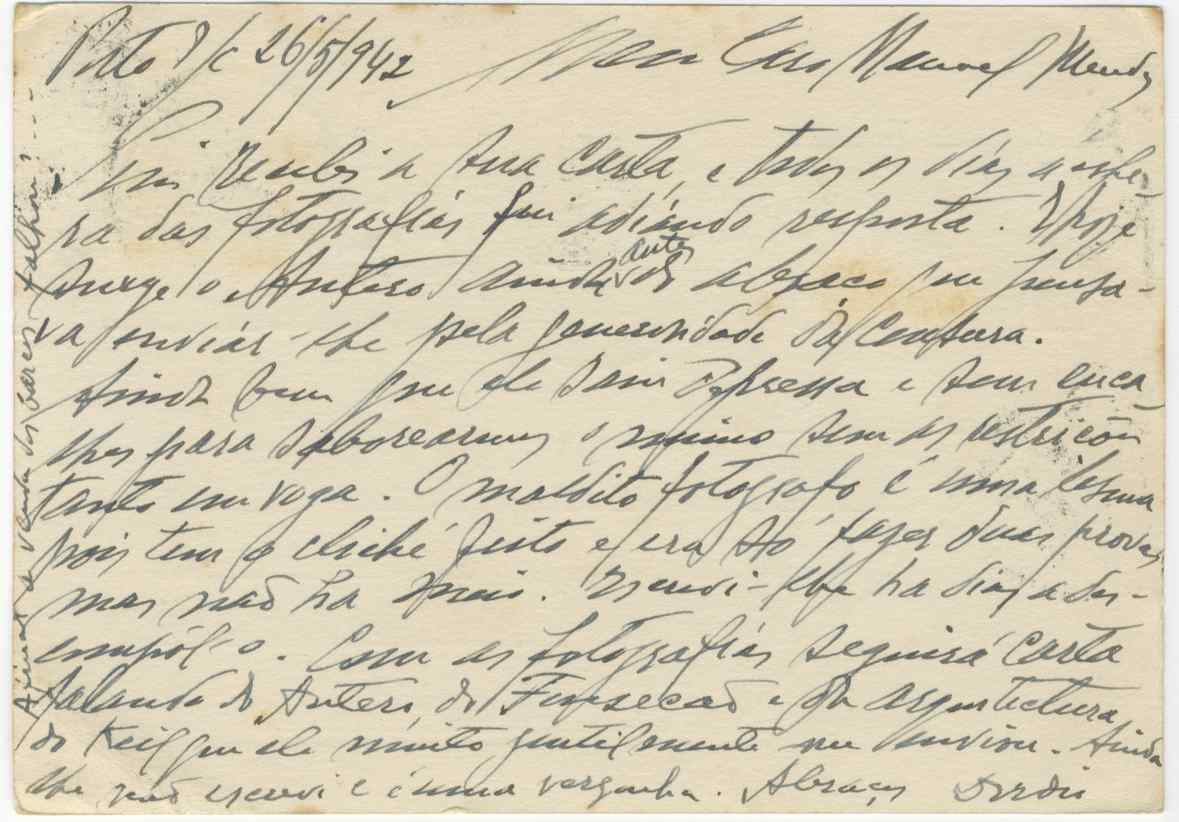 Porto s/c 26/5/942 Meu Caro Manuel Mendes
recebi a sua carta e todos os dias à espe-
ra das fotografias fui adiando resposta. Hoje
surge o Antero ainda antes do abraço que pensa-
va enviar-lhe pela generosidade da Censura.
Ainda bem que ele saiu depressa e sem enca
lhes para saborearmos o mimo sem as restricões
tanto em voga. O maldito fotografo é uma lesma
pois tem o cliché feito e era só fazer duas provas
mas não ha meio. Escrevi-lhe ha dias a des-
compôl-o. Com as fotografias seguirá carta
falando do Antero, do Fonsecaõ e da arquitectura
do Keil que ele muito gentilmente me enviou. Ainda
lhe não escrevi e é uma vergonha. Abraços